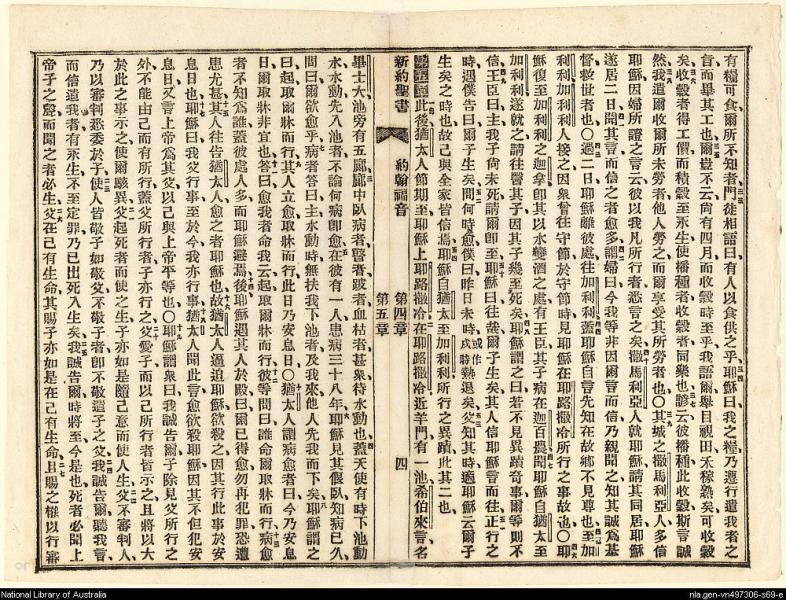 有糧可食爾所不知者門徒相語曰有人以食供之乎耶穌曰我之糧乃遵行遣我者之
旨而畢其工也爾豈不云尚有四月而收穀時至乎我語爾舉目視田禾稼熟矣可收穀
矣收穀者得工價而積穀至永生使播種者收穀者同樂也諺云彼播種此收穀斯言誠
然我遣爾收爾所未勞者他人勞之而爾享受其所勞者也○其城之撒馬利亞人多信
耶穌因婦所證之言云彼以我凡所行者悉言之矣撒馬利亞人就耶穌請其同居耶穌
遂居二日聞其言而信之者愈多謂婦曰今我等非因爾言而信乃親聞之知其誠為基
督救世者也○過二日耶穌離彼處往加利利蓋耶穌自言先知在故鄉不見尊也至加
利利加利利人接之因嘗往守節於守節時見耶穌在耶路撒冷所行之事故也○耶
穌復至加利利之迦拿卽其以水變酒之處有王臣其子病在迦百農聞耶穌自猶太至
加利利遂就之請往醫其子因其子幾至死矣耶穌謂之曰若不見異蹟奇事爾等則不
信王臣曰主我子尚未死請爾卽至耶穌曰往哉爾子生矣其人信耶穌言而往正行之
時遇僕告曰爾子生矣問何時愈僕曰昨日未時或作戌時熱退矣父知其時適耶穌云爾子
生矣之時也故己與全家皆信焉耶穌自猶太至加利利所行之異蹟此其二也
第五章此後猶太人節期至耶穌上耶路撒冷在耶路撒冷近羊門有一池希伯來言名
新約聖書 約翰福音 第四章 第五章 四
畢士大池旁有五廊廊中臥病者瞽者跛者血枯者甚衆待水動也蓋天使有時下池動
水水動先入池者不論何病卽愈在彼有一人患病三十八年耶穌見其偃臥知病已久
問曰爾欲愈乎病者答曰主水動時無扶我下池者及我來他人先我而下矣耶穌謂之
曰起取爾牀而行其人立愈取牀而行此日乃安息日○猶太人謂病愈者曰今乃安息
日爾取牀非宜也答曰愈我者命我云起取爾牀而行彼等問曰誰命爾取牀而行病愈
者不知為誰蓋彼處人多而耶穌避焉後耶穌遇其人於殿曰爾已得愈勿再犯罪恐遭
患尤甚其人往告猶太人愈之者耶穌也故猶太人逼迫耶穌欲殺之因其行此事於安
息日也耶穌曰我父行事至於今我亦行事猶太人聞此言愈欲殺耶穌因其不但犯安
息日又言上帝為其父以己與上帝平等也○耶穌謂衆曰我誠告爾子除見父所行之
外不能由己而有所行蓋父所行者子亦行之父愛子而以己所行者皆示之且將以大
於此之事示之使爾駭異父起死者而使之生子亦如是隨己意而使人生父不審判人
乃以審判悉委於子使人皆敬子如敬父不敬子者卽不敬遣子之父我誠告爾聽我言
而信遣我者有永生不至定罪乃已出死入生矣我誠告爾時將至今是也死者必聞上
帝子之聲而聞之者必生父在己有生命其賜子亦如是在己有生命且賜之權以行審
National Library of Australia
nla.gen-vn497306-s69-e